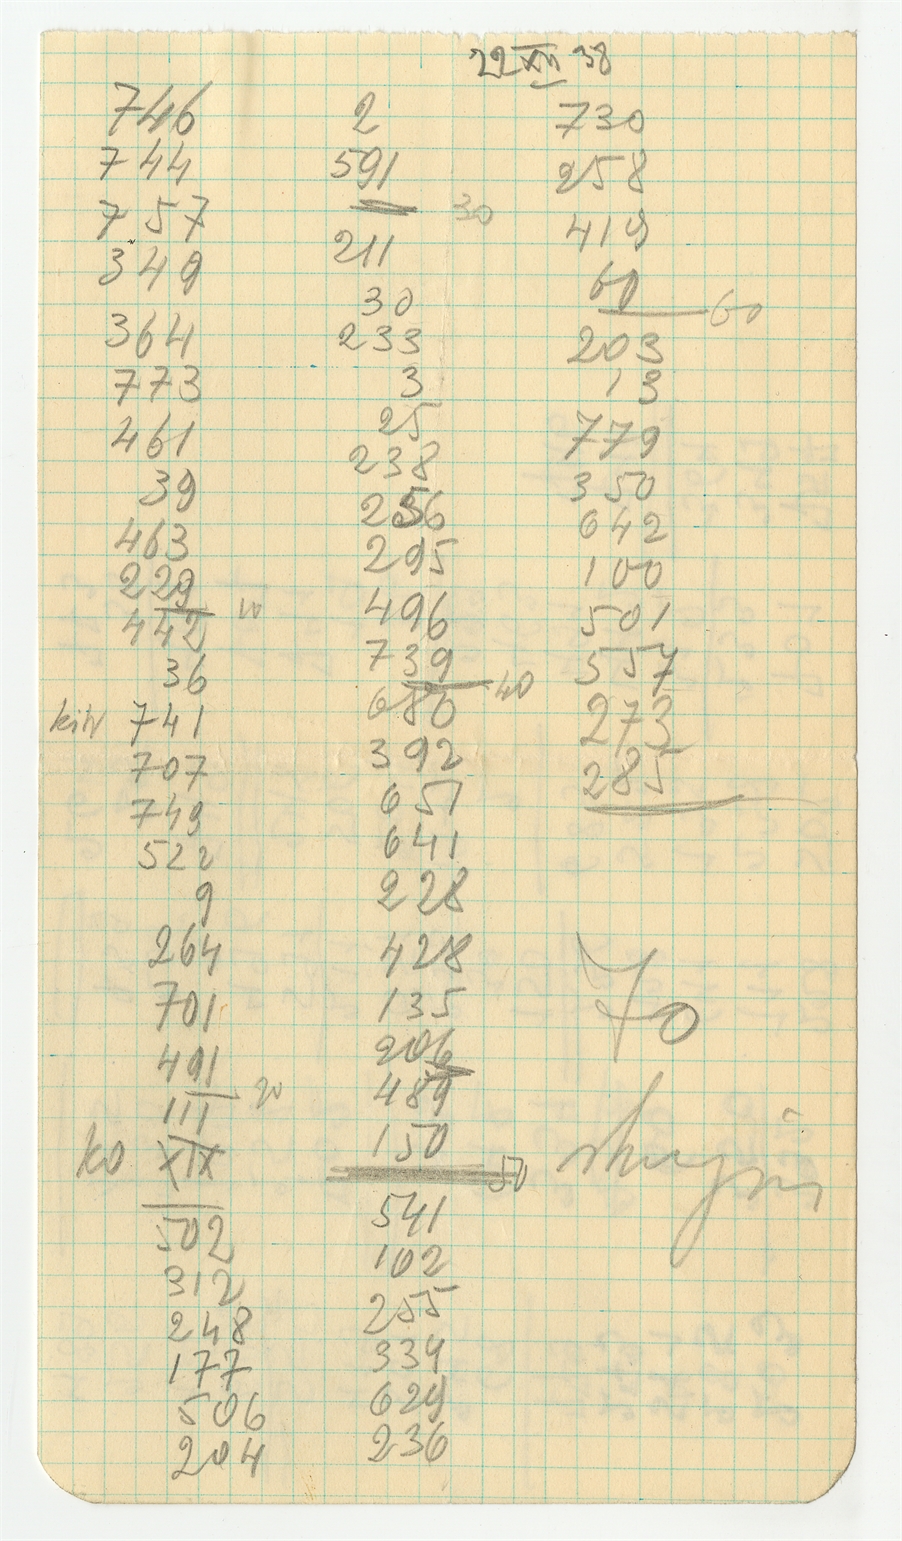 22 XII 38
746
744
757
349
364
773
461
39
463
229
10
442
36
741
707
749
522
9
264
701
491
20
111
ko XIX
502
312
248
177
506
204
2
591
30
211
30
233
3
25
238
256
295
496
739
40
680
392
651
641
228
428
135
206
489
150
50
541
102
255
334
629
236
730
258
419
60
60
203
13
779
350
642
100
501
557
273
285
70